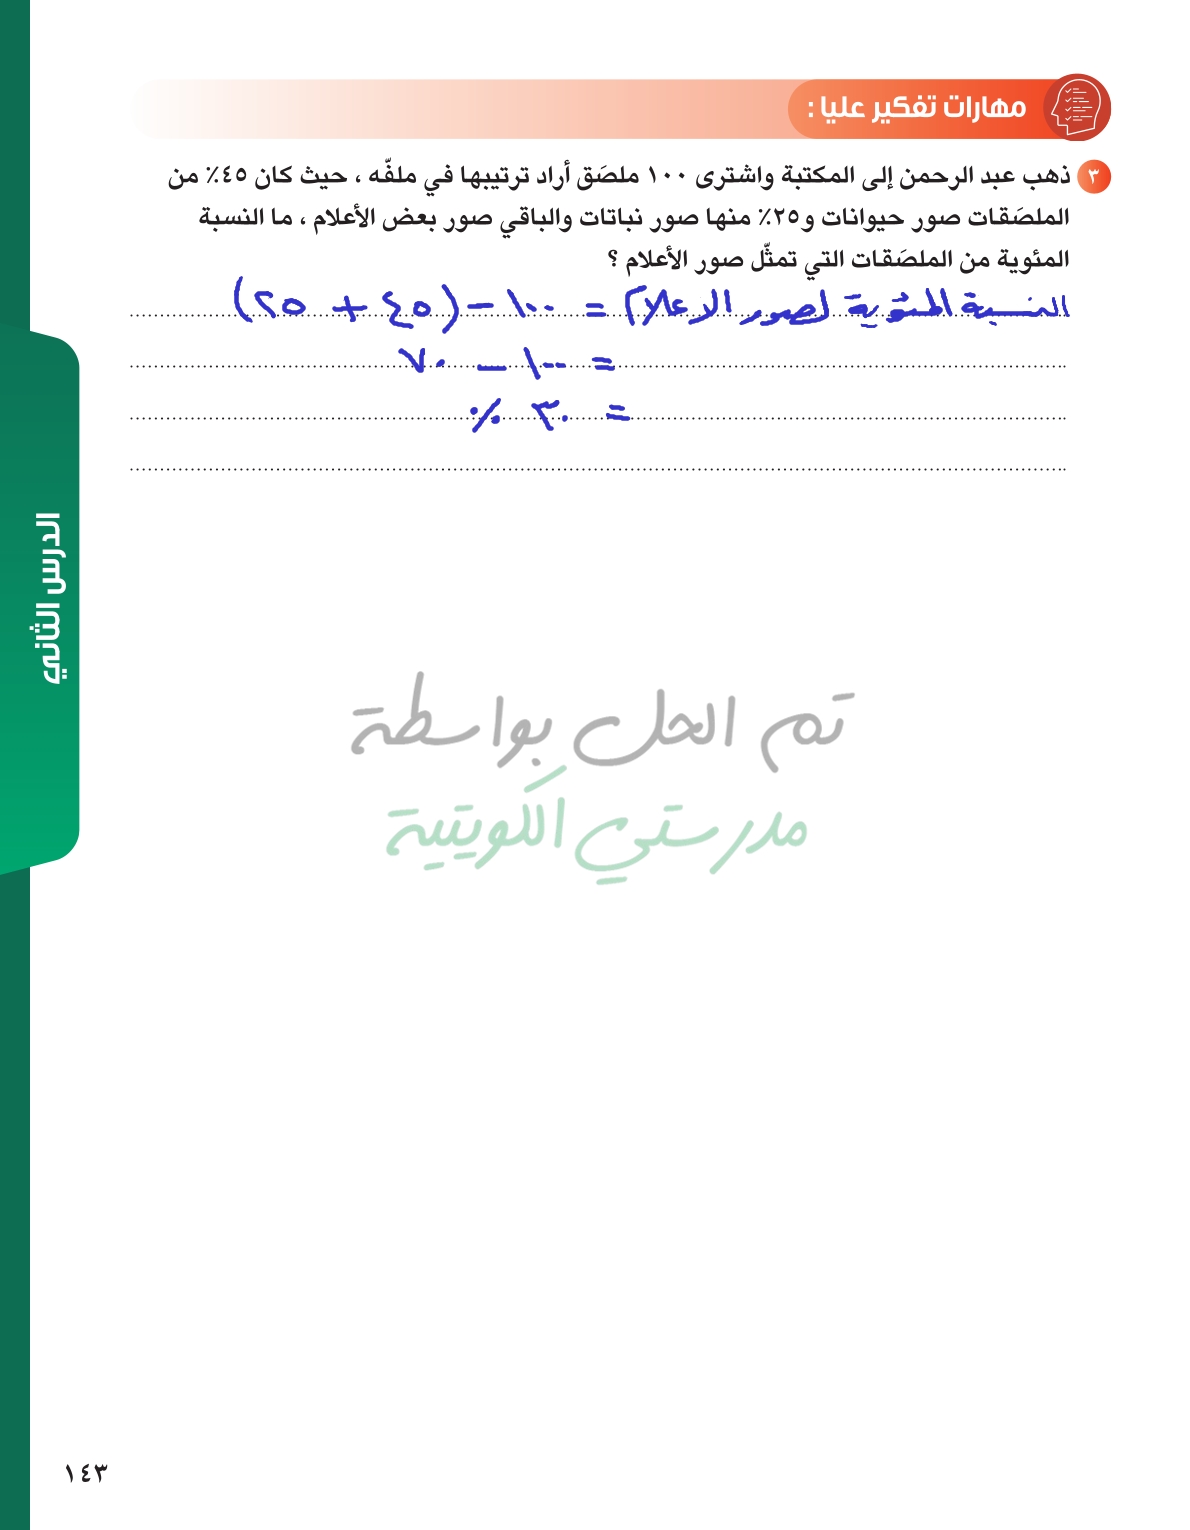 مهارات تفكير عليا :
٣ ذهب عبد الرحمن إلى المكتبة واشترى ١٠٠ ملصَق أراد ترتيبها في ملفّه ، حيث كان ٤٥٪ من
الملصَقات صور حيوانات و٢٥٪ منها صور نباتات والباقي صور بعض الأعلام ، ما النسبة
المئوية من الملصَقات التي تمثّل صور الأعلام ؟
النسبة المئوية لصور الاعلام = ١٠٠ − (٤٥ + ٢٥)
= ١٠٠ − ٧٠
= ٣٠ ٪
الدرس الثاني
تم الحل بواسطة
مدرستي الكويتية
١٤٣